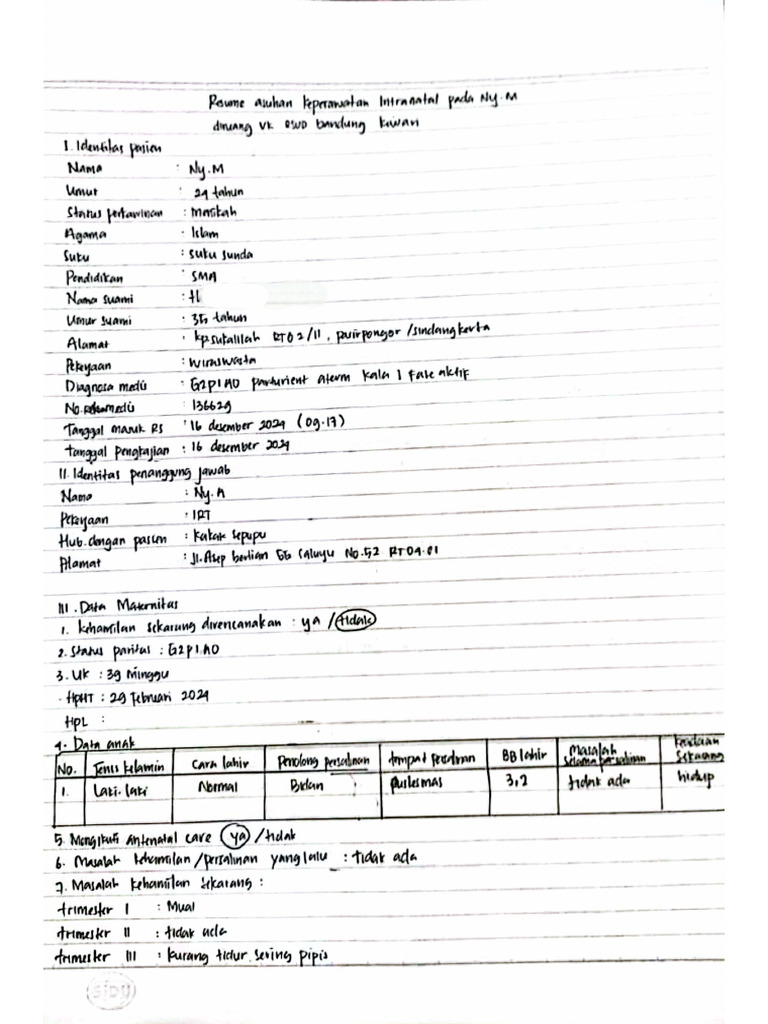 Resume asuhan keperawatan Intranatal pada Ny.M
diruang VK RSUD bandung kiwari
I. Identitas pasien
Nama : Ny.M
Umur : 29 tahun
Status perkawinan : Menikah
Agama : Islam
Suku : Suku Sunda
Pendidikan : SMA
Nama suami : H
Umur suami : 35 tahun
Alamat : kp RT02/11, /sindangkerta
Pekerjaan : Wiraswasta
Diagnosa medis : G2P1A0 parturient aterm kala 1 Fase aktif
No. rekam medis : 136629
Tanggal masuk RS : 16 desember 2024 (09.17)
tanggal pengkajian : 16 desember 2024
II. Identitas penanggung jawab
Nama : Ny.A
Pekerjaan : IRT
Hub. dengan pasien : Kakak Sepupu
Alamat : Jl. Asep berlian GG Saluyu No.52 RT04.01
III. Data Maternitas
1. kehamilan sekarang direncanakan : ya / tidak
2. Status paritas : G2P1.A0
3. UK : 39 Minggu
. HPHT : 29 Februari 2024
HPL :
4. Data anak
No. Jenis kelamin Cara lahir Penolong persalinan tempat persalinan BB lahir Masalah selama persalinan Keadaan Sekarang
1. Laki-laki Normal Bidan puskesmas 3,2 tidak ada hidup
5. Mengikuti antenatal care ya / tidak
6. Masalah kehamilan/persalinan yang lalu : tidak ada
7. Masalah kehamilan sekarang :
trimester I : Mual
trimester II : tidak ada
trimester III : kurang tidur, sering pipis
sidu